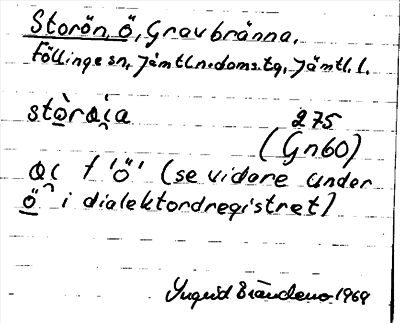 Storön, ö, Gravbränna,
Föllinge sn, Jämtl.n.doms.tg, Jämtl. l.
stòrɑi̯a
275
(Gn60)
ɑi̯ f 'ö' (se vidare under
ö i dialektordregistret)
Ingrid 1969